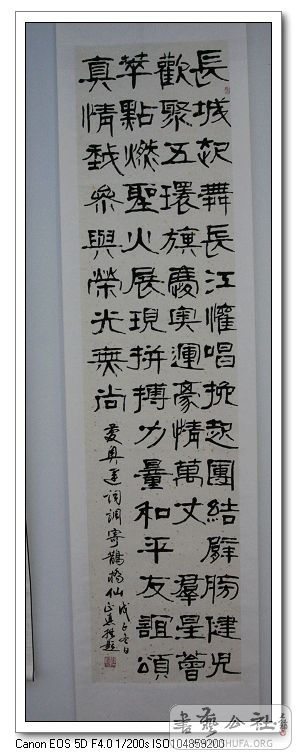 長城起舞長江懽唱挽起團結臂膀健兒
歡聚五環旗慶奧運豪情萬丈 羣星薈
萃點燃聖火展現拼搏力量和平友誼頌
真情我參與榮光無尚
愛奥運词調寄鵲橋仙 戊子冬日
書藝公社
SHUFA.ORG
Canon EOS 5D F4.0 1/200s ISO104859200